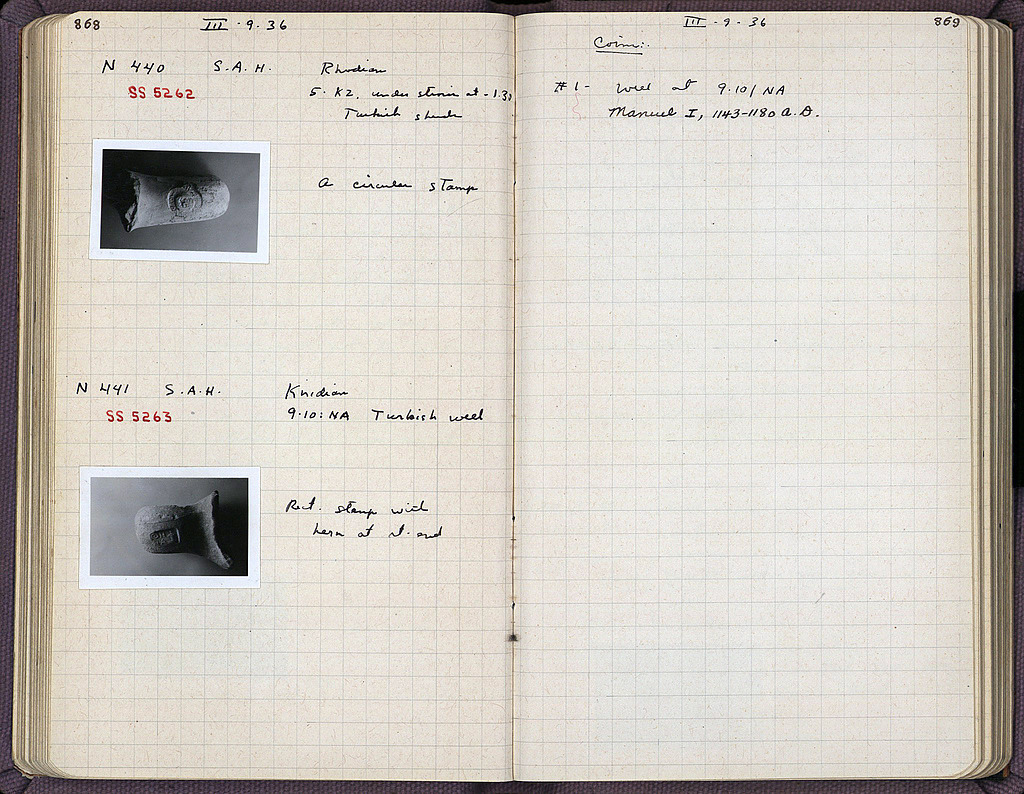 868
III · 9 · 36
N 440 S.A.H. Rhodian
SS 5262
5· KZ. under stosis at -1.3
Turkish sherds
A circular stamp
N 441 S.A.H. Knidian
SS 5263
9·10:NA Turkish well
Rect. stamp with
herm at rt. end
III · 9 · 36
869
Coins:
#1- well at 9.10/NA
Manuel I, 1143-1180 A.D.